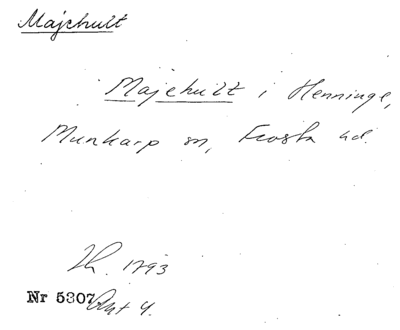 Majehult
Majehult i Henninge,
Munkarp sn, Frosta hd.
Lh. 1793
Nr 5307 Akt 4.